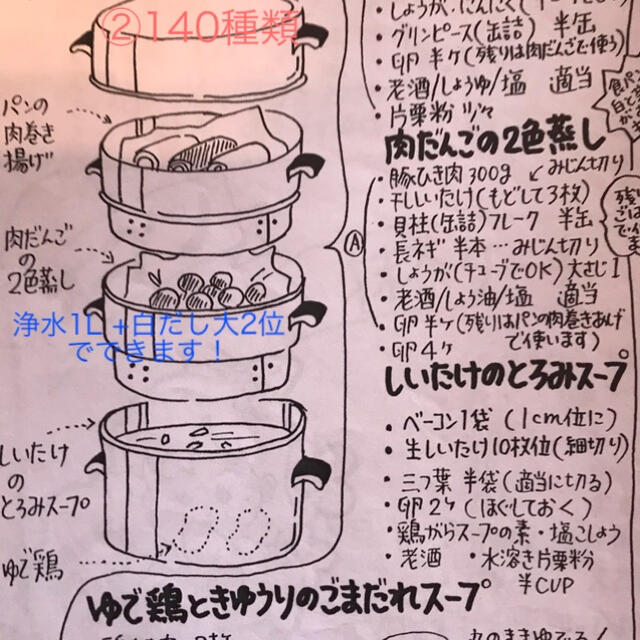 ②140種類
パンの
肉巻き
揚げ
肉だんご
の
2色蒸し
浄水1L+白だし大2位
でできます！
しいたけ
の
とろみスープ
ゆで鶏
・しょうが・にんにく
・グリンピース(缶詰) 半缶
・卵 半ケ(残りは肉だんごで使う)
・老酒/しょうゆ/塩 適当
・片栗粉 少々
肉だんごの2色蒸し
・豚ひき肉300g ↙みじん切り
・干ししいたけ(もどして3枚)
・貝柱(缶詰)フレーク 半缶
Ⓐ
・長ネギ 半本…みじん切り
・しょうが(チューブでOK)大さじ1
・老酒/しょう油/塩 適当
・卵半ケ(残りはパンの肉巻きあげ
で使います)
・卵4ケ
しいたけのとろみスープ
・ベーコン1袋 (1cm位に)
・生しいたけ10枚位(細切り)
・三つ葉 半袋(適当に切る)
・卵2ケ(ほぐしておく)
・鶏がらスープの素・塩こしょう
・老酒 ・水溶き片栗粉
半CUP
ゆで鶏ときゅうりのごまだれスープ